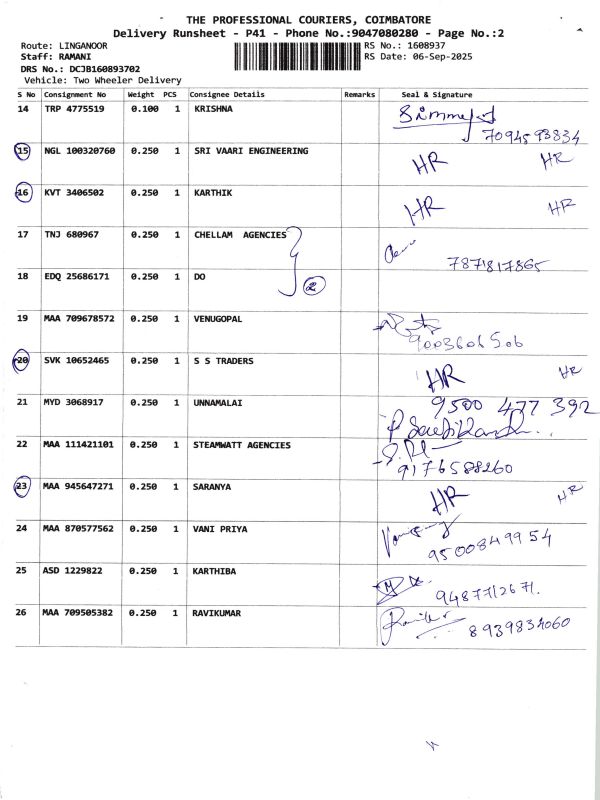 THE PROFESSIONAL COURIERS, COIMBATORE
Delivery Runsheet - P41 - Phone No.:9047080280 - Page No.:2
Route: LINGANOOR RS No.: 1608937
Staff: RAMANI RS Date: 06-Sep-2025
DRS No.: DCJB160893702
Vehicle: Two Wheeler Delivery
S No Consignment No Weight PCS Consignee Details Remarks Seal & Signature
14 TRP 4775519 0.100 1 KRISHNA
7094593834
15 NGL 100320760 0.250 1 SRI VAARI ENGINEERING HR HR
16 KVT 3406502 0.250 1 KARTHIK HR HR
17 TNJ 680967 0.250 1 CHELLAM AGENCIES
7871817865
18 EDQ 25686171 0.250 1 DO 2
19 MAA 709678572 0.250 1 VENUGOPAL
9003606506
20 SVK 10652465 0.250 1 S S TRADERS HR HR
21 MYD 3068917 0.250 1 UNNAMALAI 9500 477 392
22 MAA 111421101 0.250 1 STEAMWATT AGENCIES
9176588260
23 MAA 945647271 0.250 1 SARANYA HR HR
24 MAA 870577562 0.250 1 VANI PRIYA
9500849954
25 ASD 1229822 0.250 1 KARTHIBA
9487712671.
26 MAA 709505382 0.250 1 RAVIKUMAR
8939834060